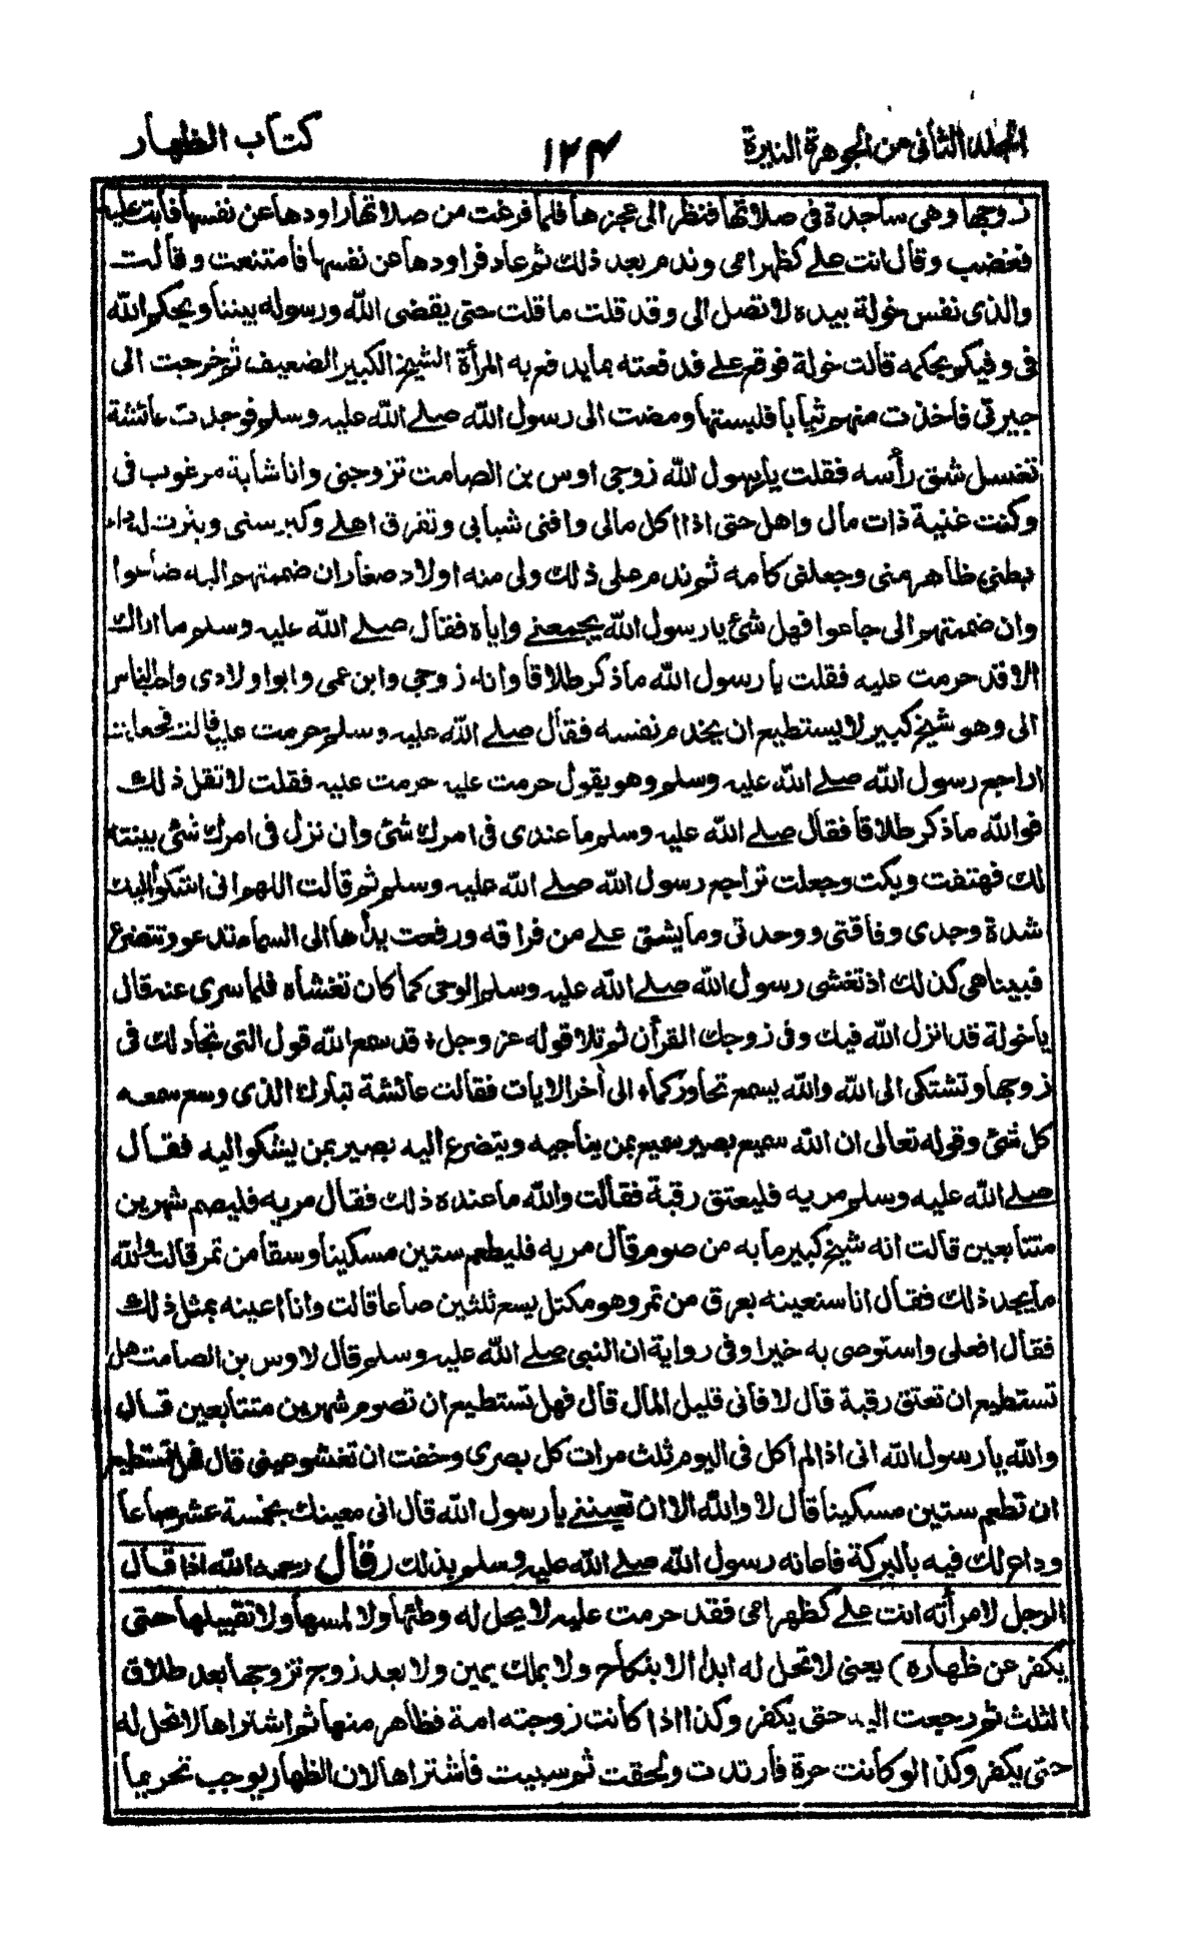 المجلد الثاني من الجوهرة النيرة
١٢٤
كتاب الظهار
زوجها وهى ساجدة فى صلاتها فنظر الى عجزها فلما فرغت من صلاتها راودها عن نفسها فابت عليه
فغضب وقال انت على كظهر امى وندم بعد ذلك ثم عاد فراودها عن نفسها فامتنعت وقالت
والذى نفس خولة بيده لا تصل الى وقد قلت ما قلت حتى يقضى الله ورسوله بيننا ويحكم الله
فى وفيك بحكمه قالت خولة فوقع على فدفعته بما يدفع به المرأة الشيخ الكبير الضعيف ثم خرجت الى
جيرتى فاخذت منهم ثيابا فلبستها ومضت الى رسول الله صلى الله عليه وسلم فوجدت عائشة
تغسل شق رأسه فقلت يا رسول الله زوجى اوس بن الصامت تزوجنى وانا شابة مرغوب فى
وكنت غنية ذات مال واهل حتى اذا اكل مالى وافنى شبابى وتفرق اهلى وكبر سنى ونثرت له ماء
بطنى ظاهر منى وجعلنى كامه ثم ندم على ذلك ولى منه اولاد صغار ان ضممتهم اليه ضاعوا
وان ضممتهم الى جاعوا فهل شئ يا رسول الله يجمعنى واياه فقال صلى الله عليه وسلم ما اراك
الا قد حرمت عليه فقلت يا رسول الله ما ذكر طلاقا وانه زوجى وابن عمى وابو اولادى واحب الناس
الى وهو شيخ كبير لا يستطيع ان يخدم نفسه فقال صلى الله عليه وسلم حرمت عليه قالت فجعلت
اراجع رسول الله صلى الله عليه وسلم وهو يقول حرمت عليه حرمت عليه فقلت لا تقل ذلك
فوالله ما ذكر طلاقا فقال صلى الله عليه وسلم ما عندى فى امرك شئ وان نزل فى امرك شئ بينته
لك فهتفت وبكت وجعلت تراجع رسول الله صلى الله عليه وسلم ثم قالت اللهم انى اشكو اليك
شدة وجدى وفاقتى ووحدتى وما يشق على من فراقه ورفعت يداها الى السماء تدعو وتتضرع
فبيناهى كذلك اذ تغشى رسول الله صلى الله عليه وسلم الوحى كما كان تغشاه فلما سرى عنه قال
يا خولة قد انزل الله فيك وفى زوجك القرأن ثم تلا قوله عز وجل قد سمع الله قول التى تجادلك فى
زوجها وتشتكى الى الله والله يسمع تحاوركما الى أخر الايات فقالت عائشة تبارك الذى وسع سمعه
كل شئ وقوله تعالى ان الله سميع بصير سميع بمن يناجيه ويتضرع اليه بصير بمن يشكو اليه فقال
صلى الله عليه وسلم مريه فليعتق رقبة فقالت والله ما عنده ذلك فقال مريه فليصم شهرين
متتابعين قالت انه شيخ كبير ما به من صوم قال مريه فليطعم ستين مسكينا وسقا من تمر قالت والله
ما يجد ذلك فقال انا سنعينه بعرق من تمر وهو مكتل يسع ثلثين صاعا قالت وانا اعينه بمثل ذلك
فقال افعلى واستوصى به خيرا وفى رواية ان النبى صلى الله عليه وسلم قال لاوس بن الصامت هل
تستطيع ان تعتق رقبة قال لا فانى قليل المال قال فهل تستطيع ان تصوم شهرين متتابعين قال
والله يا رسول الله انى اذا لم أكل فى اليوم ثلث مرات كل بصرى وخفت ان تغشو عينى قال فهل تستطيع
ان تطعم ستين مسكينا قال لا والله الا ان تعيننى يا رسول الله قال انى معينك بخمسة عشر صاعا
وداع لك فيه بالبركة فاعانه رسول الله صلى الله عليه وسلم بذلك (قال رحمه الله اذا قال
الرجل لامرأته انت على كظهر امى فقد حرمت عليه لا يحل له وطئها ولا لمسها ولا تقبيلها حتى
يكفر عن ظهاره) يعنى لا تحل له ابدا الا بنكاح ولا بملك يمين ولا بعد زوج تزوجها بعد طلاق
الثلث ثم رجعت اليه حتى يكفر وكذا اذا كانت زوجته امة فظاهر منها ثم اشتراها لا تحل له
حتى يكفر وكذا لو كانت حرة فارتدت ولحقت ثم سبيت فاشتراها لان الظهار يوجب تحريما